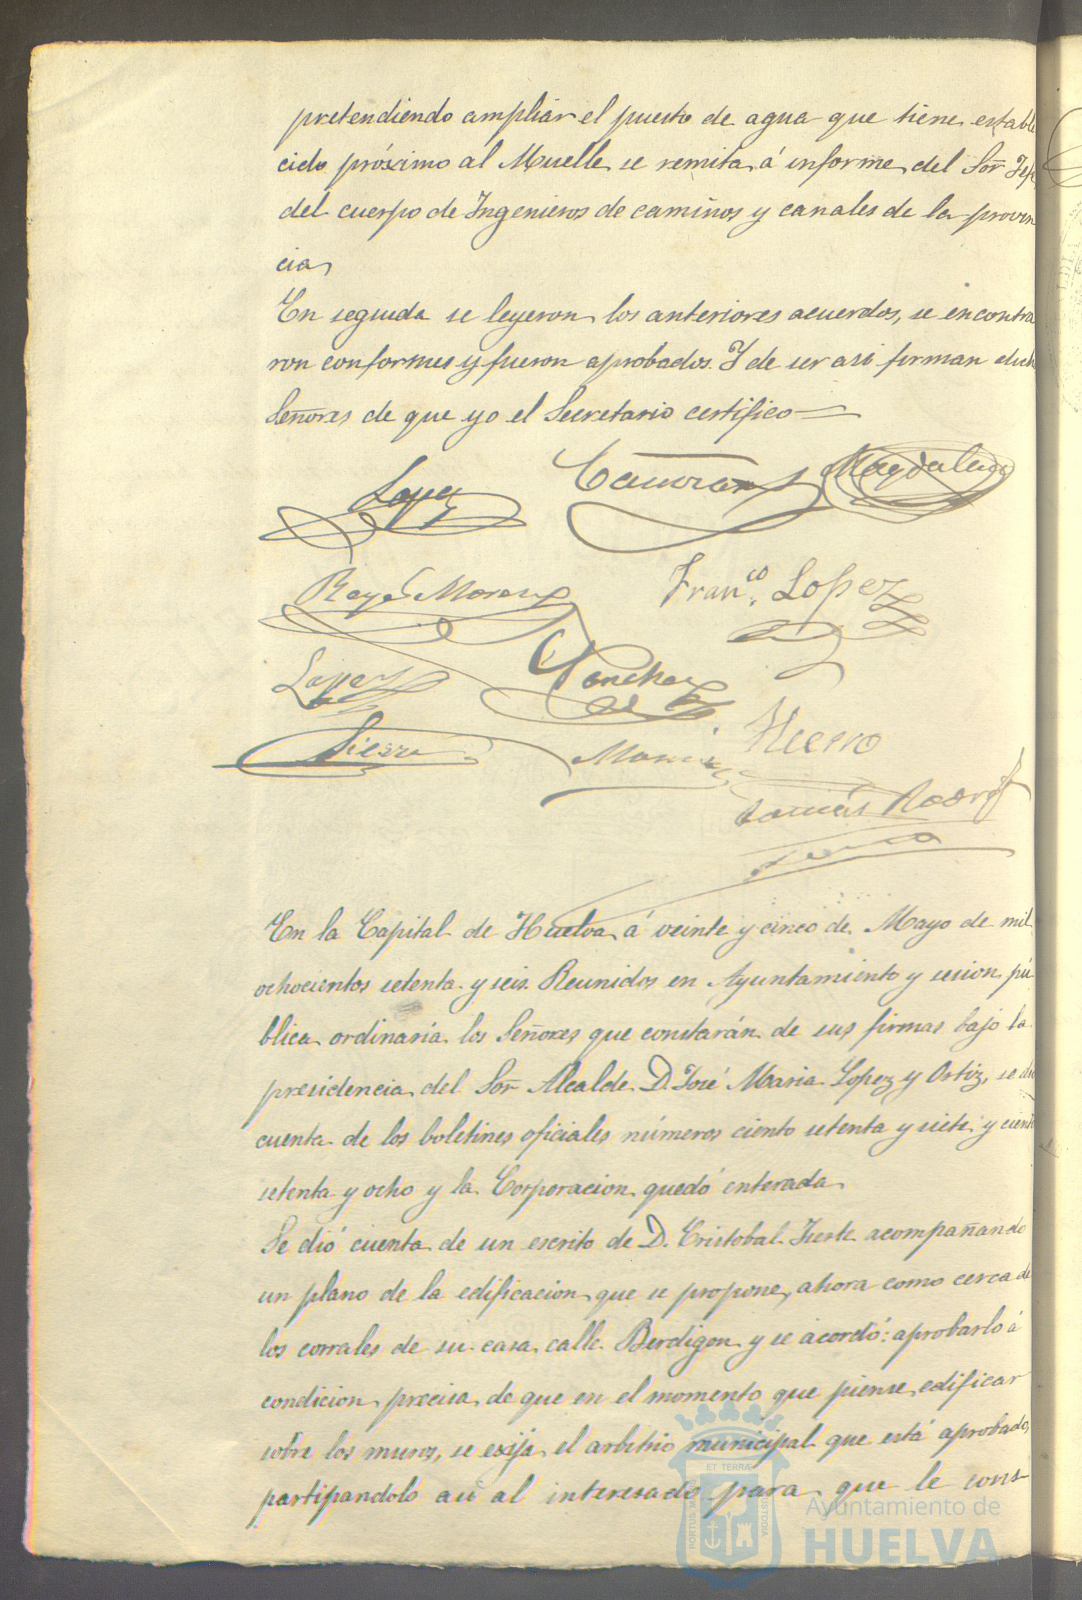 pretendiendo ampliar el puesto de agua que tiene estable
cido próximo al Muelle se remita á informe del Sor̃ Jefe
del cuerpo de Ingenieros de caminos y canales de la provin
cia
En seguida se leyeron los anteriores acuerdos, se encontra
ron conformes y fueron aprobados. Y de ser asi firman dichos
Señores de que yo el Secretario certifico
Lopez
Magdalena
Reyes Moreno
Franco. Lopez
Lopez
Sanchez
Hierro
Sierra
Tomás Rodrig
En la Capital de Huelva á veinte y cinco de Mayo de mil
ochocientos setenta y seis. Reunidos en Ayuntamiento y sesion pú
blica ordinaria los Señores que constarán de sus firmas bajo la
presidencia del Sor̃ Alcalde D. José Maria Lopez y Ortiz, se dió
cuenta de los boletines oficiales números ciento setenta y siete y ciento
setenta y ocho y la Corporacion quedó enterada
Se dió cuenta de un escrito de D. Cristobal acompañando
un plano de la edificacion que se propone, ahora como cerca de
los corrales de su casa calle Berdigon y se acordó: aprobarlo á
condicion precisa de que en el momento que piense edificar
sobre los muros, se exija el arbitrio municipal que está aprobado,
partipandolo asi al interesado para que le cons
ET TERRÆ
PORTUS MARIS
CUSTODIA
Ayuntamiento de
HUELVA